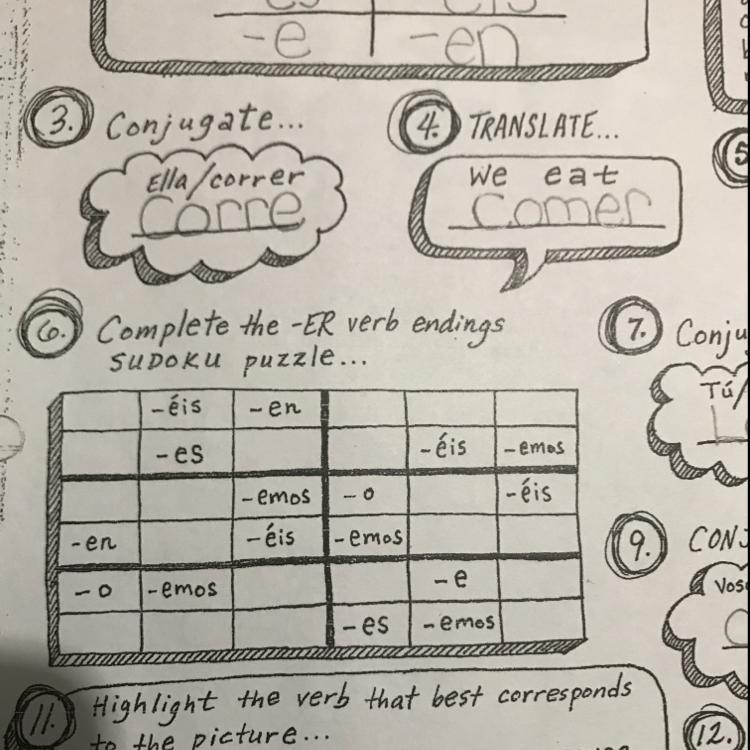 -e -en
3. Conjugate...
Ella/correr
corre
4. TRANSLATE...
We eat
comer
6. Complete the -ER verb endings
SUDOKU puzzle...
-éis -en
-es -éis -emos
-emos -o -éis
-en -éis -emos
-o -emos -e
-es -emos
7. Conju
Tú/
9. CONJ
Voso
11. Highlight the verb that best corresponds
to the picture...
12.